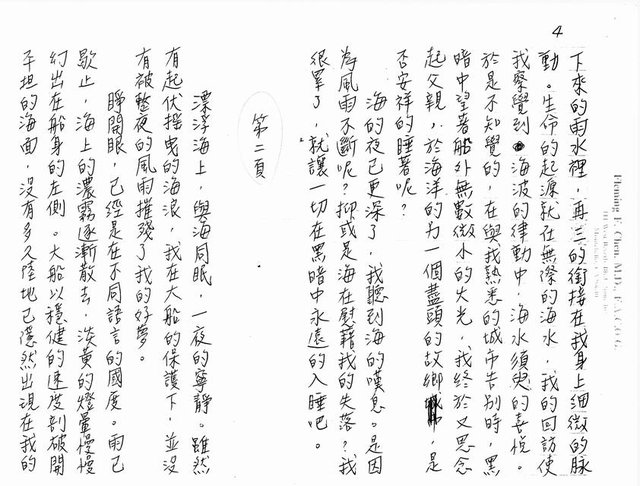 4
下來的雨水裡，再三的銜接在我身上細微的脈
動。生命的起源就在無際的海水，我的回訪使
我察覺到海波的律動中，海水須臾的喜悅。
於是不知覺的，在與我熟悉的城市告別時，黑
暗中望著船外無數微小的火光，我終於又思念
起父親，於海洋的另一個盡頭的故鄉，是
否安祥的睡著呢？
海的夜已更深了，我聽到海的嘆息。是因
為風雨不斷呢？抑或是海在慰藉我的失落？我
很累了，就讓一切在黑暗中永遠的入睡吧。
第二頁
漂浮海上，與海同眠，一夜的寧靜。雖然
有起伏搖曳的海浪，我在大船的保護下，並沒
有被整夜的風雨摧殘了我的好夢。
睜開眼，已經是在不同語言的國度。雨已
歇止，海上的濃霧逐漸散去，淡黄的燈暈慢慢
幻出在船身的左側。大船以穩健的速度剖破開
平坦的海面，沒有多久陸地已隱然出現在我的
Fleming F. Chen, M.D., F.A.C.O.G.